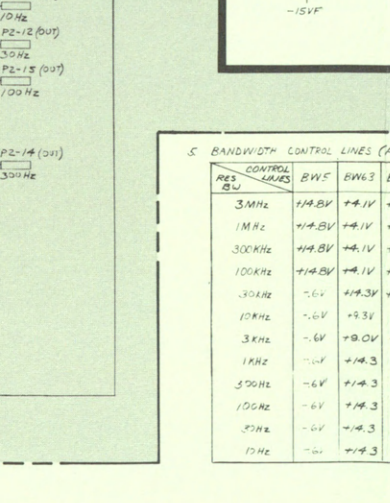 10Hz
P2-12(OUT)
30Hz
P2-15(OUT)
100Hz
P2-14(OUT)
300Hz
-15VF
5. BANDWIDTH CONTROL LINES (
CONTROL LINES RES BW BW5 BW63
3MHz +14.8V +4.1V
1MHz +14.8V +4.1V
300KHz +14.8V +4.1V
100KHz +14.8V +4.1V
30KHz -.6V +14.3V
10KHz -.6V +9.3V
3KHz -.6V +9.0V
1KHz -.6V +14.3
300Hz -.6V +14.3
100Hz -.6V +14.3
30Hz -.6V +14.3
10Hz -.6V +14.3